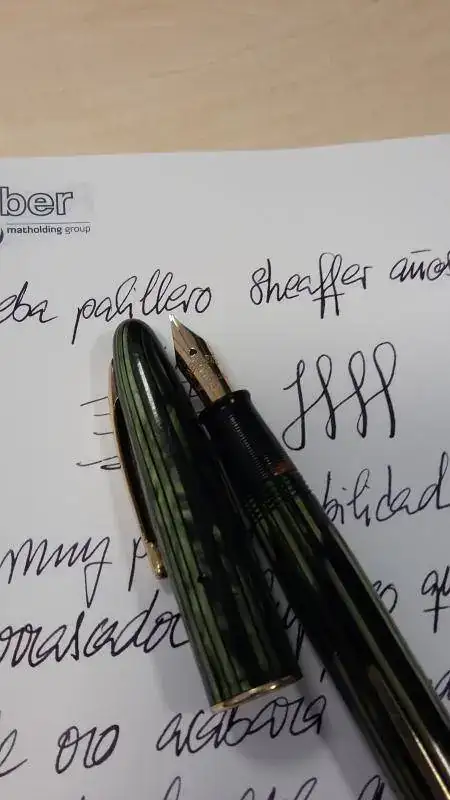 ber
matholding group
eba palillero sheaffer años
bilidad
muy p
orrascador
e oro acabará